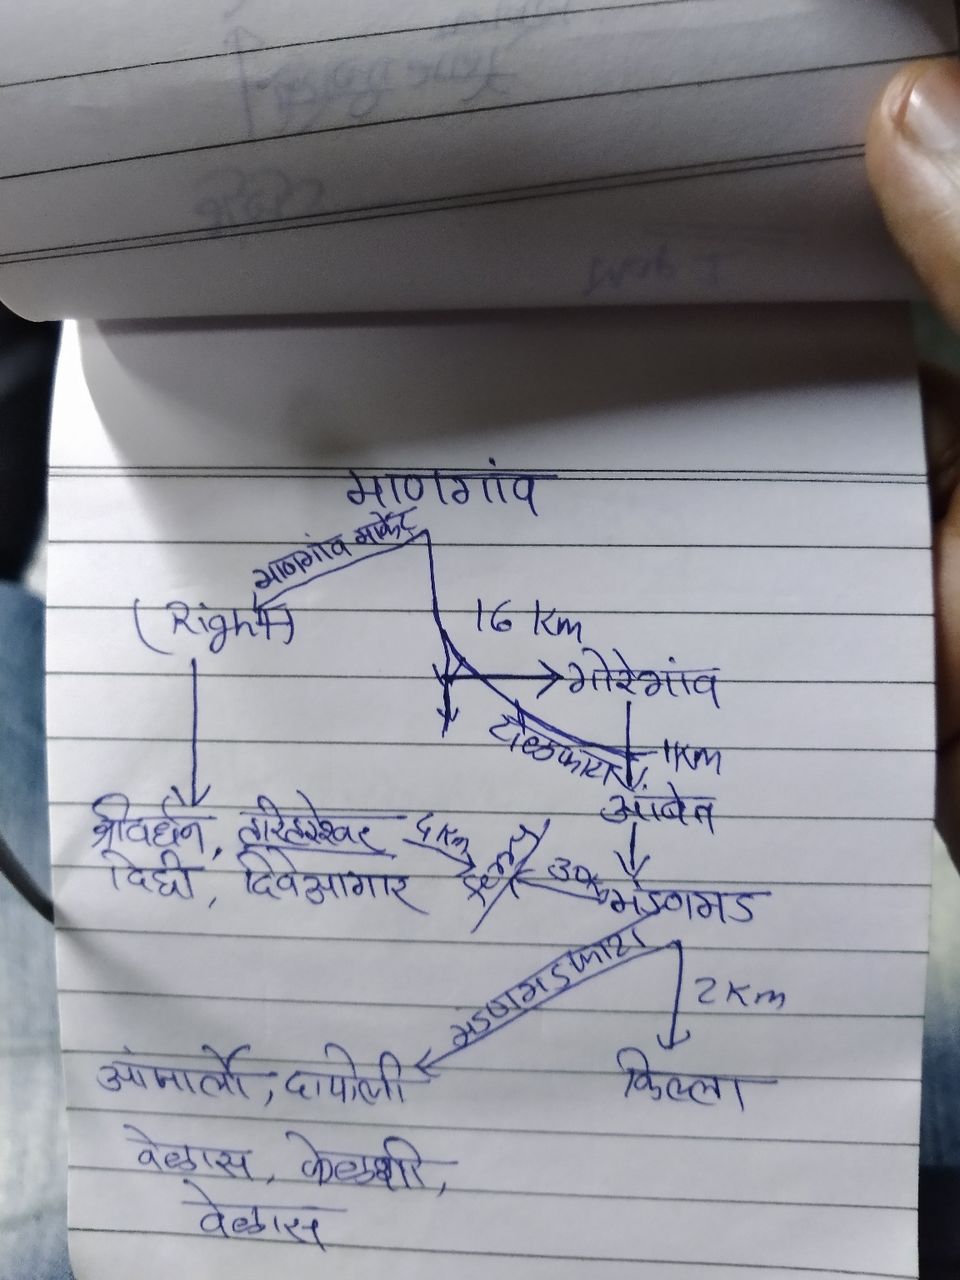 माणगांव
माणगांव मार्केट
(Right)
16 Km
गोरेगांव
1Km
आंबेत
श्रीवर्धन, हरिहरेश्वर
दिघी, दिवेआगार
5 Km
मंडणगड
मंडणगड फाटा
2 Km
किल्ला
दापोली
वेळास, केळशी,
वेळास